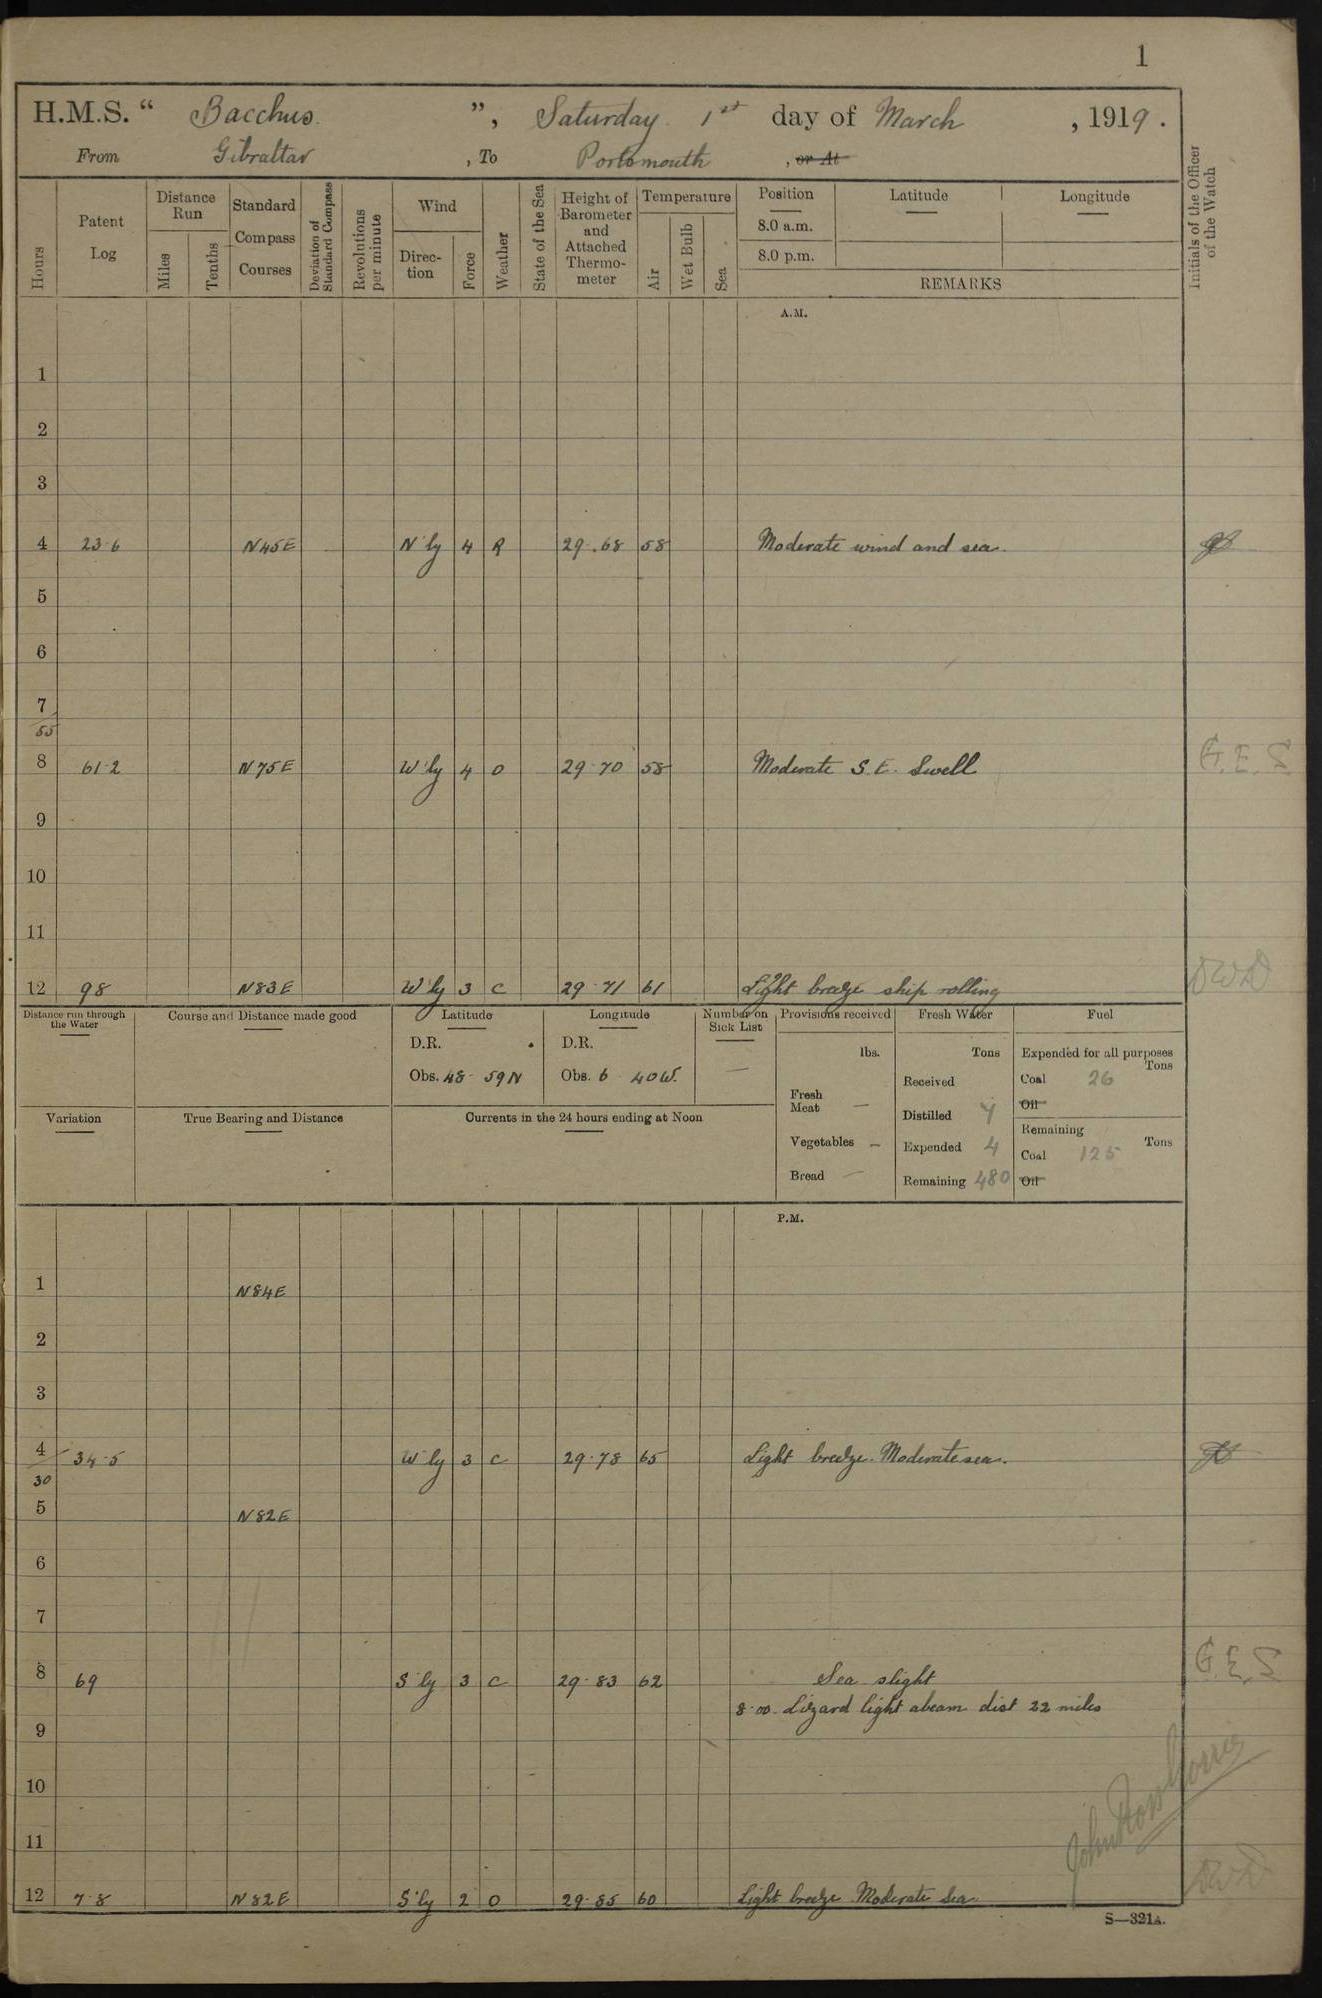 1
H.M.S. “ Bacchus ”, Saturday 1st day of March , 1919 .
From Gibraltar , To Portsmouth , or At
Hours
Patent Log
Distance Run
Miles
Tenths
Standard Compass Courses
Deviation of Standard Compass
Revolutions per minute
Wind
Direc-tion
Force
Weather
State of the Sea
Height of Barometer and Attached Thermo-meter
Temperature
Air
Wet Bulb
Sea
Position Latitude Longitude
8.0 a.m.
8.0 p.m.
REMARKS
Initials of the Officer of the Watch
A.M.
1
2
3
4 23·6 N45E N'ly 4 R 29·68 58 Moderate wind and sea.
5
6
7
55
8 61·2 N75E W'ly 4 O 29·70 58 Moderate S.E. Swell G.E.S
9
10
11
12 98 N83E W'ly 3 C 29·71 61 Light breeze ship rolling DWD
Distance run through the Water
Course and Distance made good
Latitude
D.R.
Obs. 48 59N
Longitude
D.R.
Obs. 6 40W.
Number on Sick List
—
Provisions received
lbs.
Fresh Meat —
Vegetables —
Bread —
Fresh Water
Tons
Received
Distilled 7
Expended 4
Remaining 480
Fuel
Expended for all purposes
Tons
Coal 26
Oil
Remaining
Tons
Coal 125
Oil
Variation
True Bearing and Distance
Currents in the 24 hours ending at Noon
P.M.
1 N84E
2
3
4 34·5 W'ly 3 C 29·78 65 Light breeze. Moderate sea.
30
5 N82E
6
7
8 69 S'ly 3 C 29·83 62 Sea slight G.E.S
8·00 Lizard light abeam dist 22 miles
9
10
11
12 7·8 N82E S'ly 2 O 29·85 60 Light breeze Moderate Sea. DWD
S—321A.